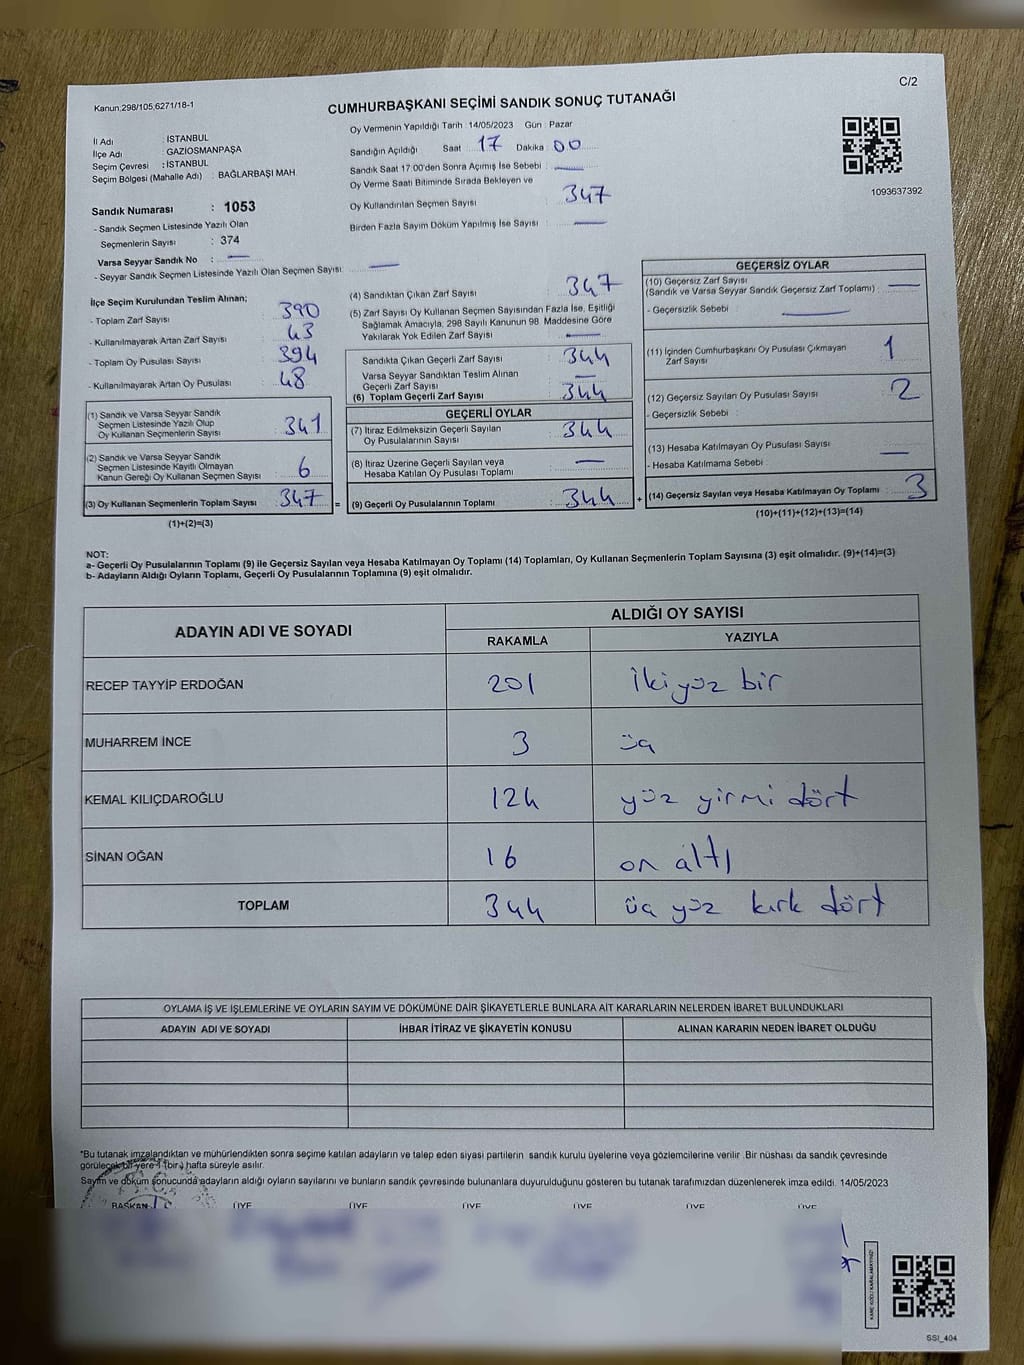 C/2
Kanun,298/105,6271/18-1
CUMHURBAŞKANI SEÇİMİ SANDIK SONUÇ TUTANAĞI
İl Adı : İSTANBUL
İlçe Adı : GAZİOSMANPAŞA
Seçim Çevresi : İSTANBUL
Seçim Bölgesi (Mahalle Adı) : BAĞLARBAŞI MAH.
Sandık Numarası : 1053
- Sandık Seçmen Listesinde Yazılı Olan
Seçmenlerin Sayısı : 374
Varsa Seyyar Sandık No : —
- Seyyar Sandık Seçmen Listesinde Yazılı Olan Seçmen Sayısı: —
Oy Vermenin Yapıldığı Tarih : 14/05/2023 Gün : Pazar
Sandığın Açıldığı Saat : 17 Dakika : 00
Sandık Saat 17:00'den Sonra Açımış İse Sebebi : —
Oy Verme Saati Bitiminde Sırada Bekleyen ve
Oy Kullandırılan Seçmen Sayısı : 347
Birden Fazla Sayım Döküm Yapılmış İse Sayısı : —
1093637392
İlçe Seçim Kurulundan Teslim Alınan;
- Toplam Zarf Sayısı : 390
- Kullanılmayarak Artan Zarf Sayısı : 43
- Toplam Oy Pusulası Sayısı : 394
- Kullanılmayarak Artan Oy Pusulası : 48
(1) Sandık ve Varsa Seyyar Sandık
Seçmen Listesinde Yazılı Olup
Oy Kullanan Seçmenlerin Sayısı : 341
(2) Sandık ve Varsa Seyyar Sandık
Seçmen Listesinde Kayıtlı Olmayan
Kanun Gereği Oy Kullanan Seçmen Sayısı : 6
(3) Oy Kullanan Seçmenlerin Toplam Sayısı : 347 =
(1)+(2)=(3)
(4) Sandıktan Çıkan Zarf Sayısı : 347
(5) Zarf Sayısı Oy Kullanan Seçmen Sayısından Fazla İse, Eşitliği
Sağlamak Amacıyla, 298 Sayılı Kanunun 98. Maddesine Göre
Yakılarak Yok Edilen Zarf Sayısı : —
Sandıkta Çıkan Geçerli Zarf Sayısı : 344
Varsa Seyyar Sandıktan Teslim Alınan
Geçerli Zarf Sayısı : —
(6) Toplam Geçerli Zarf Sayısı : 344
GEÇERLİ OYLAR
(7) İtiraz Edilmeksizin Geçerli Sayılan
Oy Pusulalarının Sayısı : 344
(8) İtiraz Üzerine Geçerli Sayılan veya
Hesaba Katılan Oy Pusulası Toplamı : —
(9) Geçerli Oy Pusulalarının Toplamı : 344 +
GEÇERSİZ OYLAR
(10) Geçersiz Zarf Sayısı
(Sandık ve Varsa Seyyar Sandık Geçersiz Zarf Toplamı) : —
- Geçersizlik Sebebi : —
(11) İçinden Cumhurbaşkanı Oy Pusulası Çıkmayan
Zarf Sayısı : 1
(12) Geçersiz Sayılan Oy Pusulası Sayısı : 2
- Geçersizlik Sebebi :
(13) Hesaba Katılmayan Oy Pusulası Sayısı : —
- Hesaba Katılmama Sebebi :
(14) Geçersiz Sayılan veya Hesaba Katılmayan Oy Toplamı : 3
(10)+(11)+(12)+(13)=(14)
NOT:
a- Geçerli Oy Pusulalarının Toplamı (9) ile Geçersiz Sayılan veya Hesaba Katılmayan Oy Toplamı (14) Toplamları, Oy Kullanan Seçmenlerin Toplam Sayısına (3) eşit olmalıdır. (9)+(14)=(3)
b- Adayların Aldığı Oyların Toplamı, Geçerli Oy Pusulalarının Toplamına (9) eşit olmalıdır.
ADAYIN ADI VE SOYADI
ALDIĞI OY SAYISI
RAKAMLA YAZIYLA
RECEP TAYYİP ERDOĞAN 201 İki yüz bir
MUHARREM İNCE 3 üç
KEMAL KILIÇDAROĞLU 124 yüz yirmi dört
SİNAN OĞAN 16 on altı
TOPLAM 344 üç yüz kırk dört
OYLAMA İŞ VE İŞLEMLERİNE VE OYLARIN SAYIM VE DÖKÜMÜNE DAİR ŞİKAYETLERLE BUNLARA AİT KARARLARIN NELERDEN İBARET BULUNDUKLARI
ADAYIN ADI VE SOYADI İHBAR İTİRAZ VE ŞİKAYETİN KONUSU ALINAN KARARIN NEDEN İBARET OLDUĞU
*Bu tutanak imzalandıktan ve mühürlendikten sonra seçime katılan adayların ve talep eden siyasi partilerin sandık kurulu üyelerine veya gözlemcilerine verilir .Bir nüshası da sandık çevresinde
görülecek bir yere 1 (bir) hafta süreyle asılır.
Sayım ve döküm sonucunda adayların aldığı oyların sayılarını ve bunların sandık çevresinde bulunanlara duyurulduğunu gösteren bu tutanak tarafımızdan düzenlenerek imza edildi. 14/05/2023
BAŞKAN ÜYE ÜYE ÜYE ÜYE ÜYE ÜYE
SSI_404